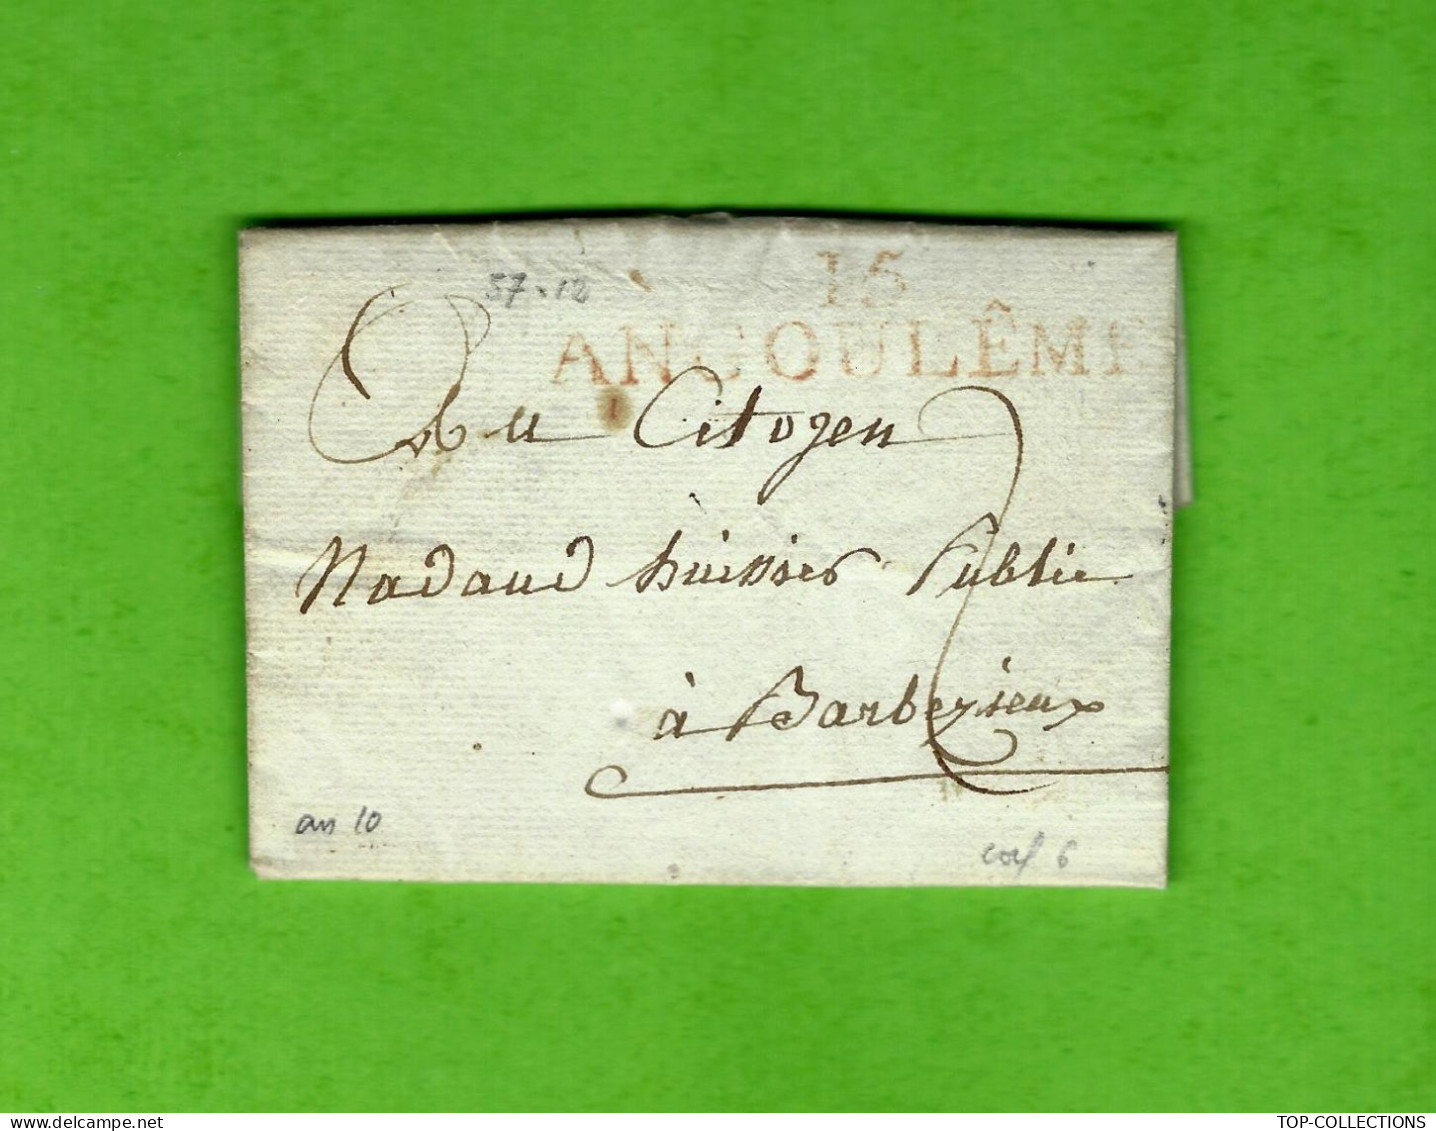 57.12
15
ANGOULÊME
Au Citoyen
Nadaud huissier Public
à Barbezieux
2
an 10
cof 6
TOP-COLLECTIONS